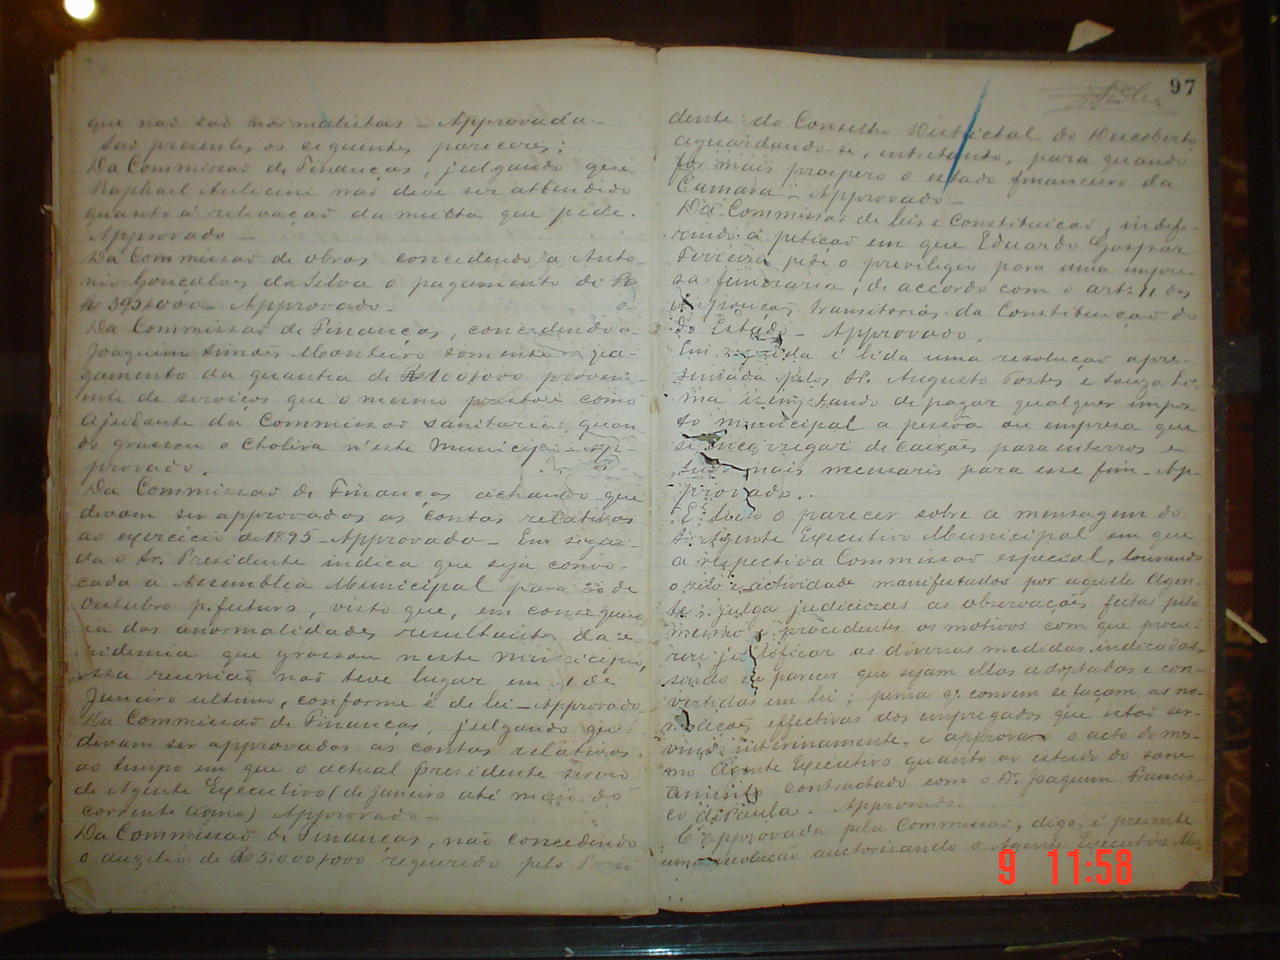 que naõ saõ normalistas – Approvada –
Saõ presentes os seguintes pareceres:
Da Commissaõ de Finanças, julgando que
Raphael Aulicini naõ deve ser attendido
quanto á relevaçaõ da multa que pede.
Approvado –
Da Commissaõ de obras concedendo a Anto-
nio Gonçalves da Silva o pagamento de
Rs 395$000 – Approvado –
Da Commissaõ de Finanças, concedendo a
Joaquim Simaõ Monteiro somente pa-
gamento da quantia de Rs 100$000 proveni-
ente de serviços que o mesmo prestou como
ajudante da Commissaõ sanitaria quan-
do grassou o Cholera n'este Municipio – Ap-
provado.
Da Commissaõ de Finanças achando que
devem ser approvados as contas relativas
ao exercicio de 1895 – Approvado – Em segui-
da o Sr. Presidente indica que seja convo-
cada a Assemblea Municipal para 30 de
Outubro p. futuro, visto que, em consequen-
cia das anormalidades resultantes da e-
pidemia que grassou neste Municipio,
essa reuniaõ naõ teve lugar em 1 de
Janeiro ultimo, conforme é de lei – Approvado
Da Commissaõ de Finanças, julgando que
devem ser approvados as contas relativas
ao tempo em que o actual presidente servio
de Agente Executivo (de Janeiro até maio do
corrente anno) Approvado –
Da Commissaõ de Finanças, naõ concedendo
o auxilio de Rs 5:000$000 requerido pelo Presi
97
dente do Conselho Districtal do Descoberto,
aguardando-se, entretanto, para quando
for mais prospero o estado financeiro da
Camara – Approvado –
Da Commissaõ de leis e Constituiçaõ, indefe-
rindo a petiçaõ em que Eduardo Gaspar
Ferreira pedio privilegio para uma impre-
sa funeraria, de accordo com o art: 11 das
disposições transitorias da Constituiçaõ do
do Estado – Approvado.
Em seguida é lida uma resoluçaõ apre-
sentada pelos Sr. Augusto Fortes e Souza Li-
ma izemptando de pagar qualquer impos-
to municipal a pessôa ou empresa que
se encarregar de caixões para enterros e
tudo mais necessario para esse fim – Ap-
provado..
É lido o parecer sobre a mensagem do
Sr. Agente Executivo Municipal em que
a respectiva Commissaõ especial, louvando
o zelo e actividade manifestados por aquelle Agen-
te, julga judiciozas as observações feitas pelo
mesmo e procedentes os motivos com que procu-
rou justificar as diversas medidas indicadas,
sendo de parecer que sejam ellas adoptadas e con-
vertidas em lei; pensa q. convem se façam as no-
meações effectivas dos empregados que estaõ ser-
vindo interinamente, e approva o acto do mes-
mo Agente Executivo quanto ao estudo do sane
amento contractado com o Dr. Joaquim Francis-
co de Paula. Approvado.
É approvada pela Commissaõ, digo, é presente
uma resoluçaõ auctorisando o Agente Executivo Mu-
9 11:58